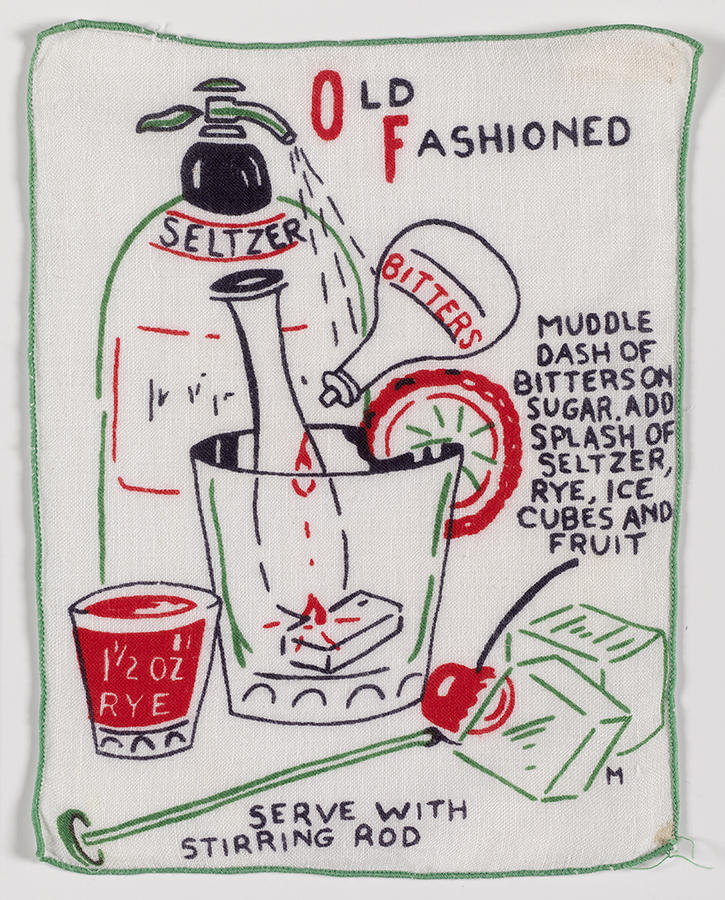 OLD
FASHIONED
SELTZER
BITTERS
MUDDLE
DASH OF
BITTERS ON
SUGAR. ADD
SPLASH OF
SELTZER,
RYE, ICE
CUBES AND
FRUIT
1½ OZ
RYE
M
SERVE WITH
STIRRING ROD